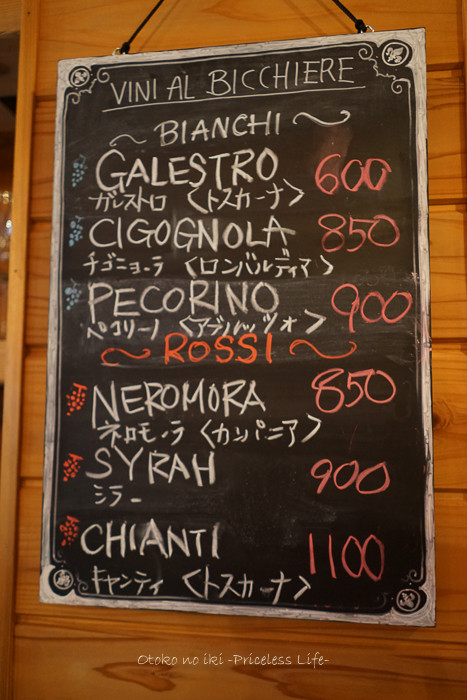 VINI AL BICCHIERE
~ BIANCHI ~
GALESTRO 600
ガレストロ 〈トスカーナ〉
CIGOGNOLA 850
チゴニョーラ 〈ロンバルディア〉
PECORINO 900
ペコリーノ 〈アブルッツォ〉
~ ROSSI ~
NEROMORA 850
ネロモーラ 〈カンパニア〉
SYRAH 900
シラー
CHIANTI 1100
キャンティ 〈トスカーナ〉
Otoko no iki -Priceless Life-